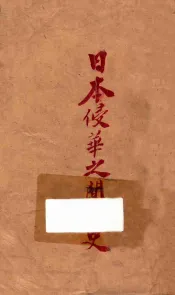 日本侵華之間史